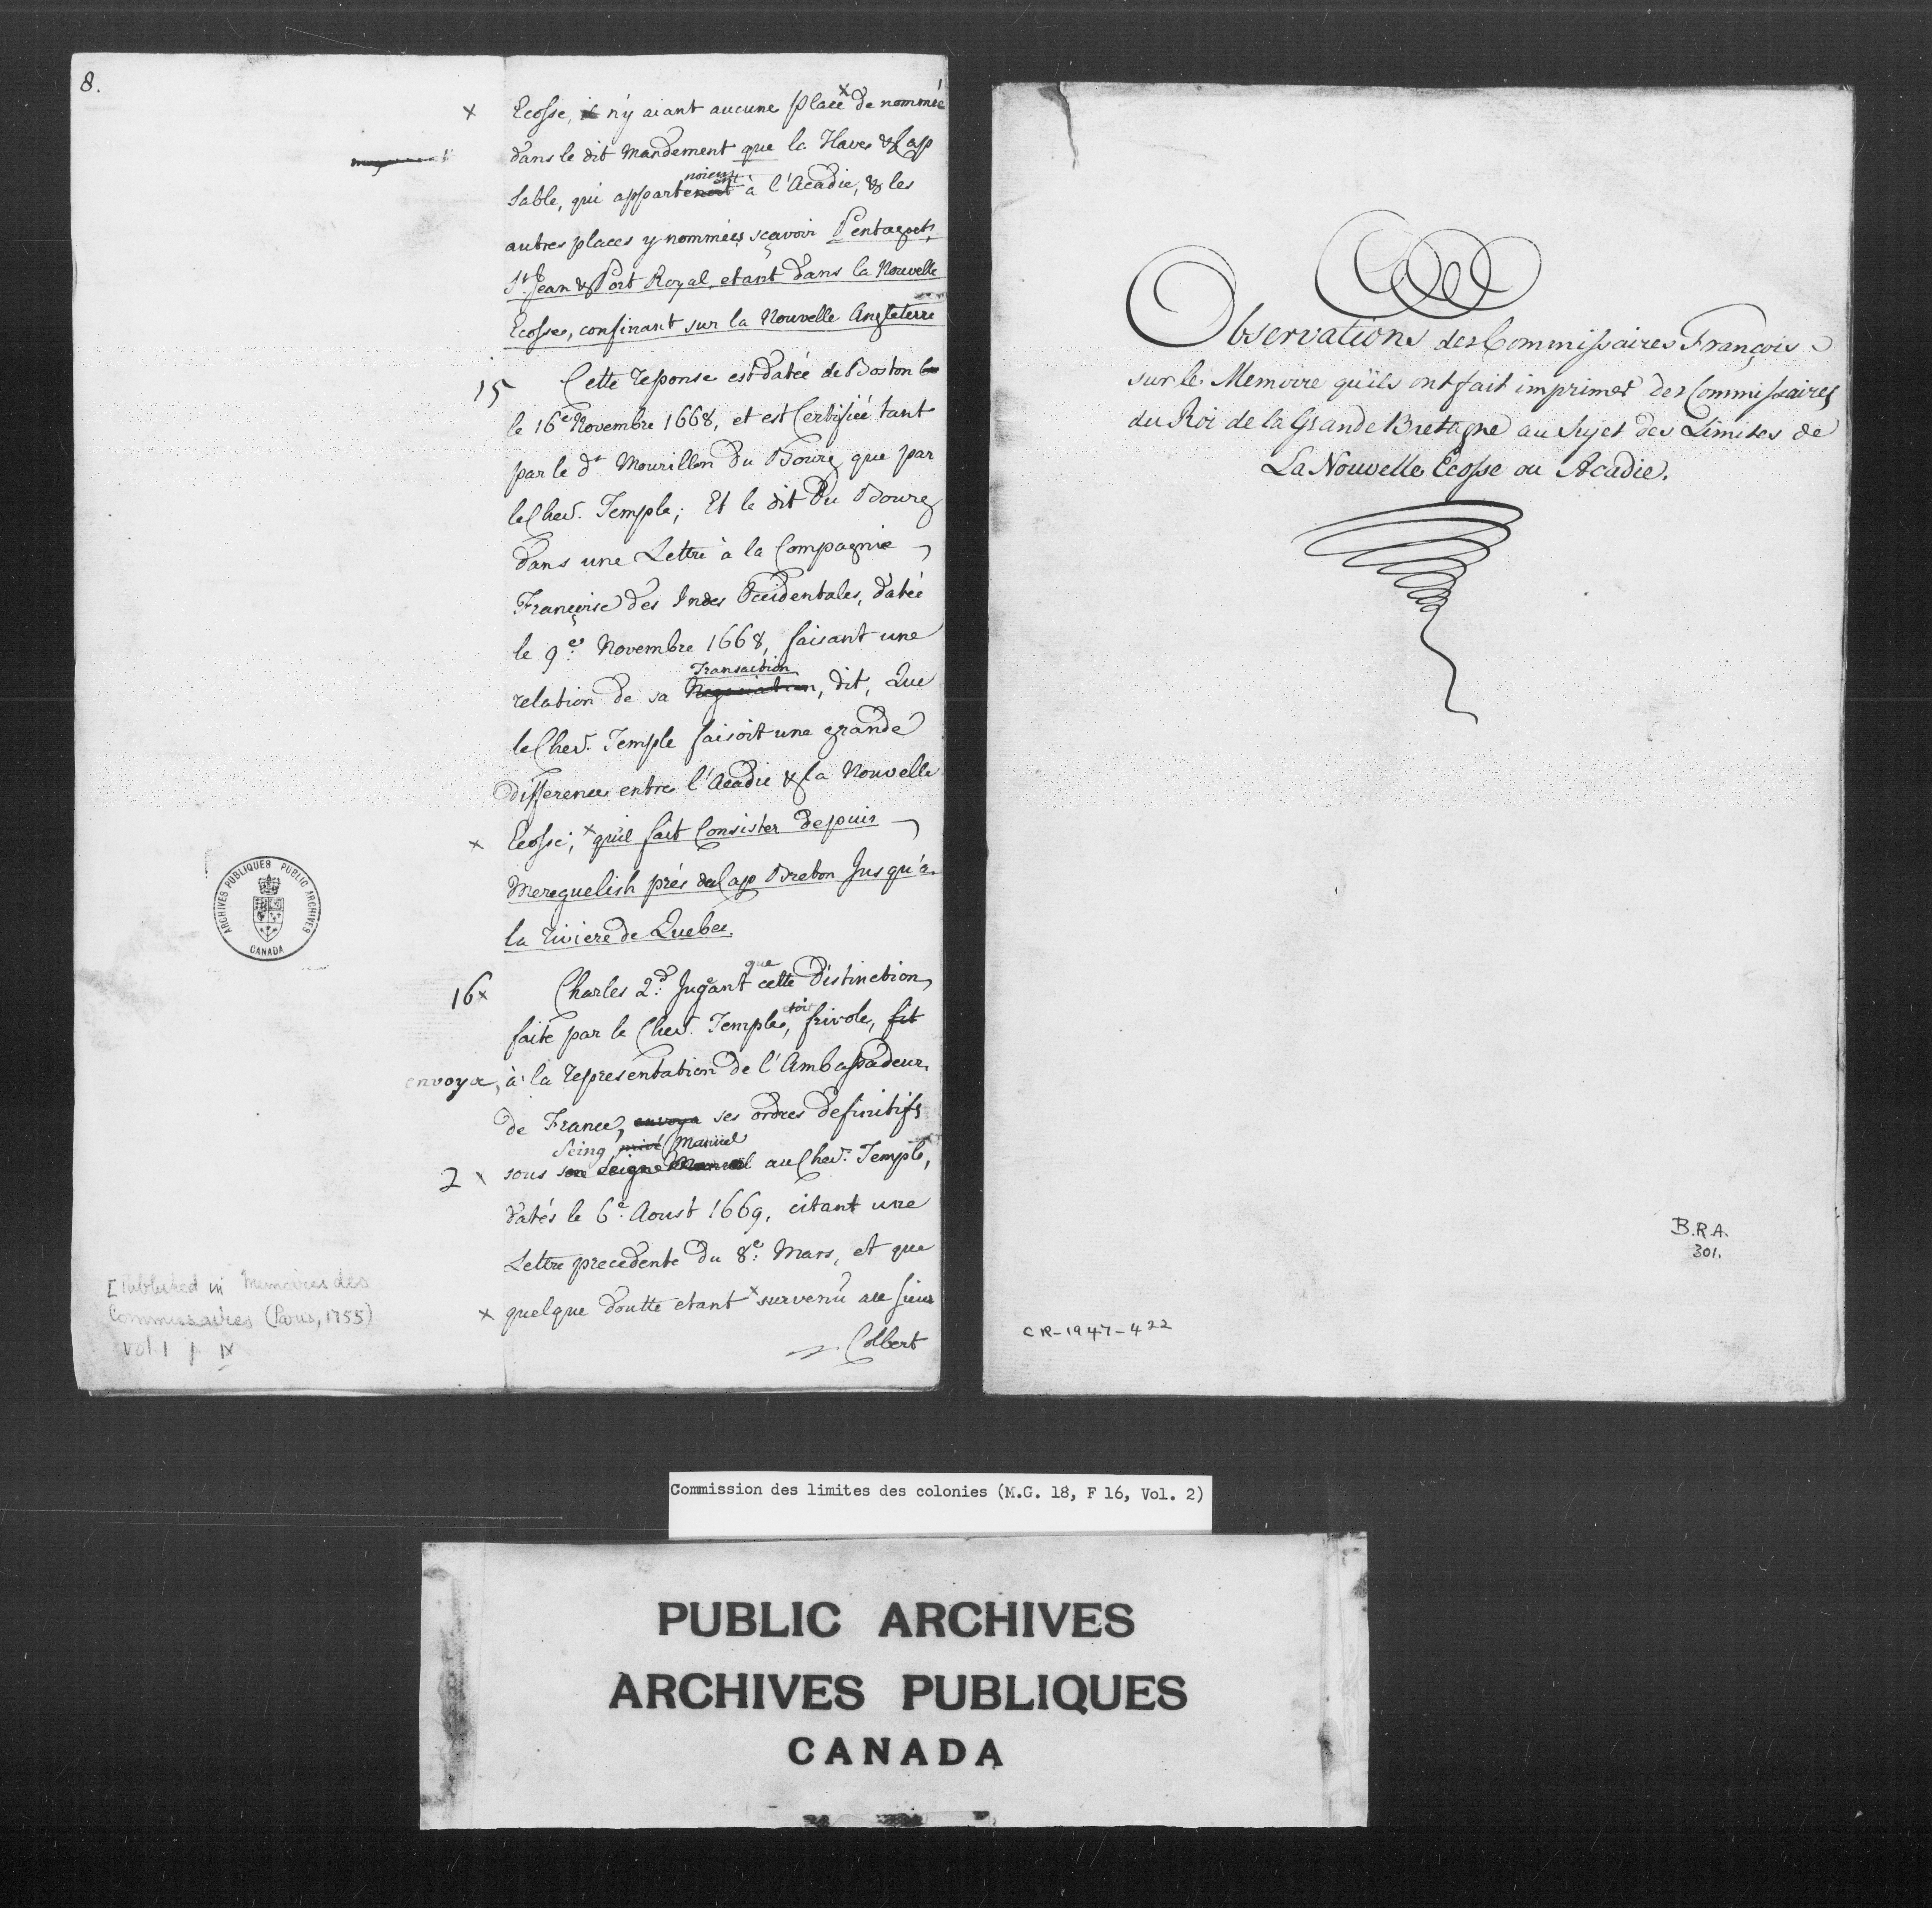 8.
x Ecosse, il n'y aiant aucune place x de nommée
dans le dit Mandement que la Haves & Cap
noient
Sable, qui appartenoit à l'Acadie, & les
autres places y nommées sçavoir Pentagoet,
St. Jean & Port Royal, etant dans la Nouvelle
Ecosse, confinant sur la Nouvelle Angleterre
15 Cette reponse est datée de Boston
le 16e Novembre 1668, et est Certifiée tant
par le dt. Mourillon Du Bourg que par
le Chevr. Temple; Et le dit Du Bourg
dans une Lettre à la Compagnie
Françoise des Indes Occidentales, datée
le 9e. Novembre 1668, faisant une
Transaction
relation de sa Negociation, dit, Que
le Chevr. Temple faisoit une grande
difference entre l'Acadie & la Nouvelle
x Ecosse; x qu'il fait Consister depuis
Mereguelish prés du Cap Breton Jusqu'à
la riviere de Quebec.
que
16 x Charles 2d. Jugeant cette Distinction,
faite par le Chevr. Temple, frivole, fit
envoya, à la representation de l'Ambassadeur
de France, envoya ses ordres definitifs
Seing privé Manuel
2 x sous son seigne Manuel au Chevr. Temple,
datés le 6e. Aoust 1669, citant une
Lettre precedente du 8e. Mars, et que
x quelque doutte etant x survenu au sieur
Colbert
ARCHIVES PUBLIQUES PUBLIC ARCHIVES
CANADA
[Published in Memoires des
Commissaires (Paris, 1755)
vol. 1 p. IX
Observations des Commissaires François
sur le Memoire qu'ils ont fait imprimer des Commissaires
du Roi de la Grande Bretagne au Sujet des Limites de
La Nouvelle Ecosse ou Acadie.
B.R.A.
301.
CR-1947-422
Commission des limites des colonies (M.G. 18, F 16, Vol. 2)
PUBLIC ARCHIVES
ARCHIVES PUBLIQUES
CANADA